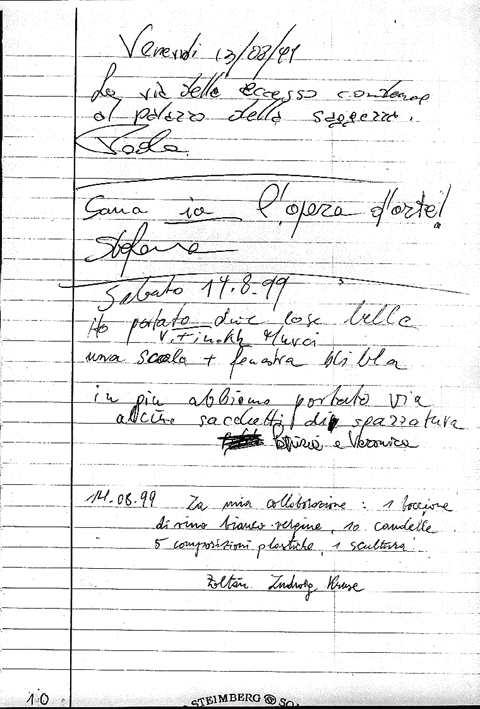 Venerdì 13/08/99
La via delle eccesso conduce
al palazzo della saggezza.
Paola
Sono io l'opera d'arte!
Stefania
Sabato 14.8.99
Ho portato due cose belle
una scala + fenestra
in piu abbiamo portato via
alcune sacchetti di spazzatura
e Veronica
14.08.99 La mia collaborazione : 1 boccione
di vino bianco vergine, 10 candelle
5 composizioni plastiche, 1 scultura
Zoltán Ludwig Kruse
10
STEIMBERG